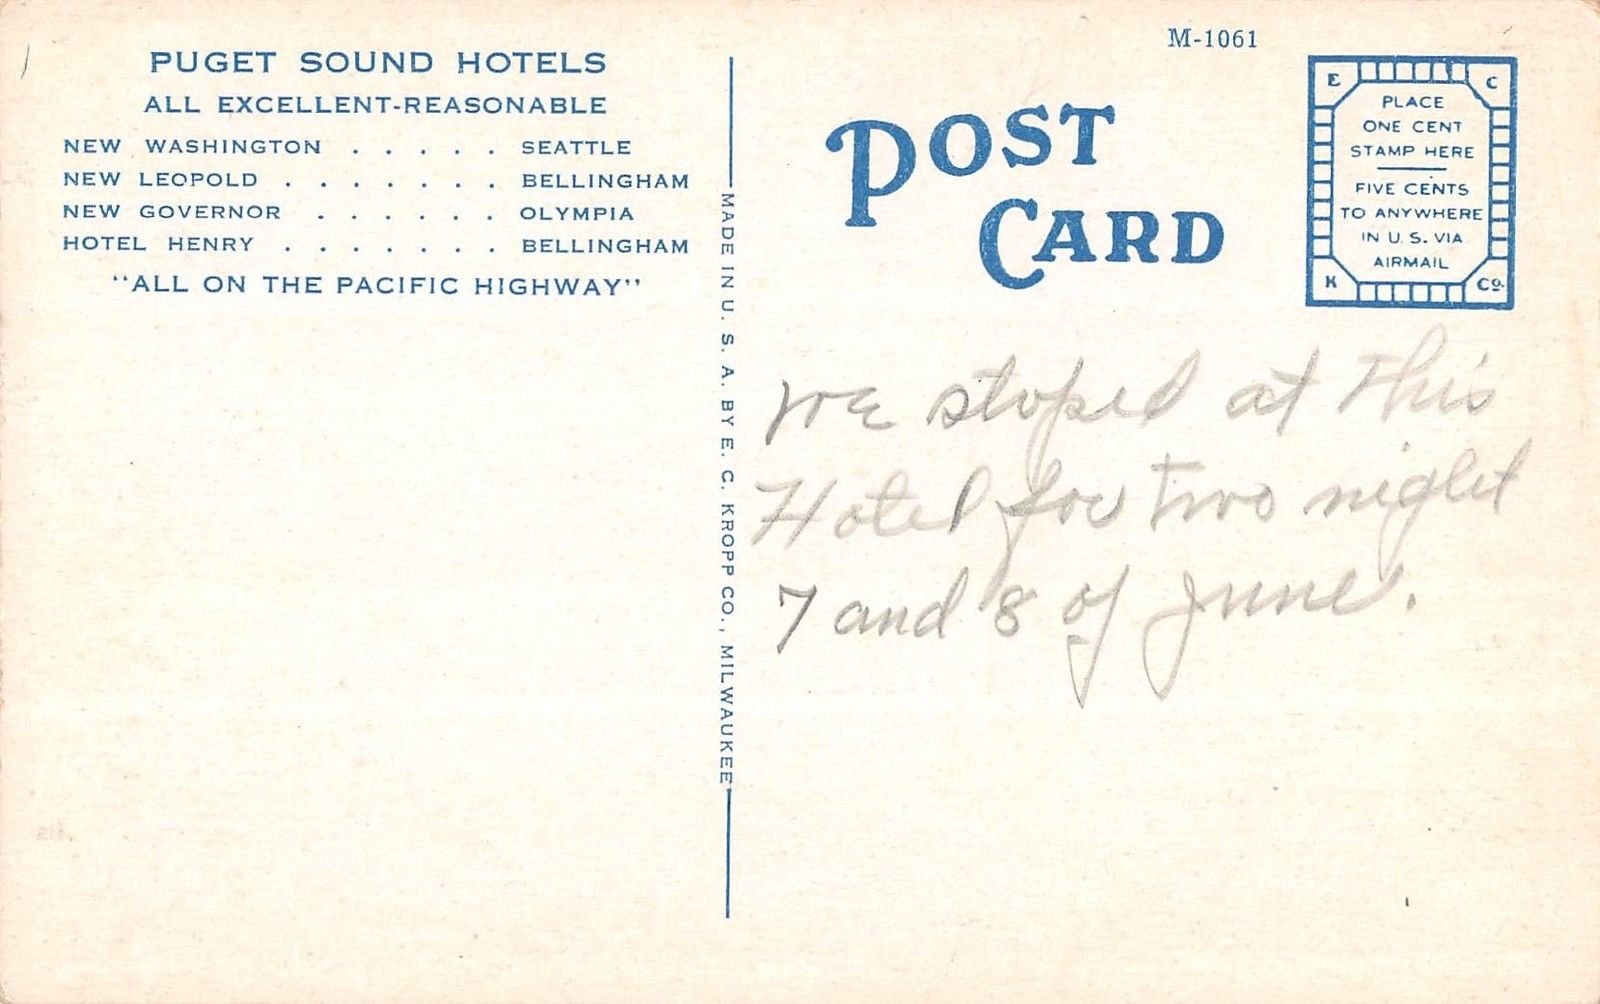 PUGET SOUND HOTELS
ALL EXCELLENT-REASONABLE
NEW WASHINGTON . . . . . SEATTLE
NEW LEOPOLD . . . . . . . BELLINGHAM
NEW GOVERNOR . . . . . . OLYMPIA
HOTEL HENRY . . . . . . . BELLINGHAM
"ALL ON THE PACIFIC HIGHWAY"
MADE IN U. S. A. BY E. C. KROPP CO., MILWAUKEE
M-1061
POST
CARD
E C
PLACE
ONE CENT
STAMP HERE
FIVE CENTS
TO ANYWHERE
IN U. S. VIA
AIRMAIL
K Co.
We stoped at this
Hotel for two night
7 and 8 of June.